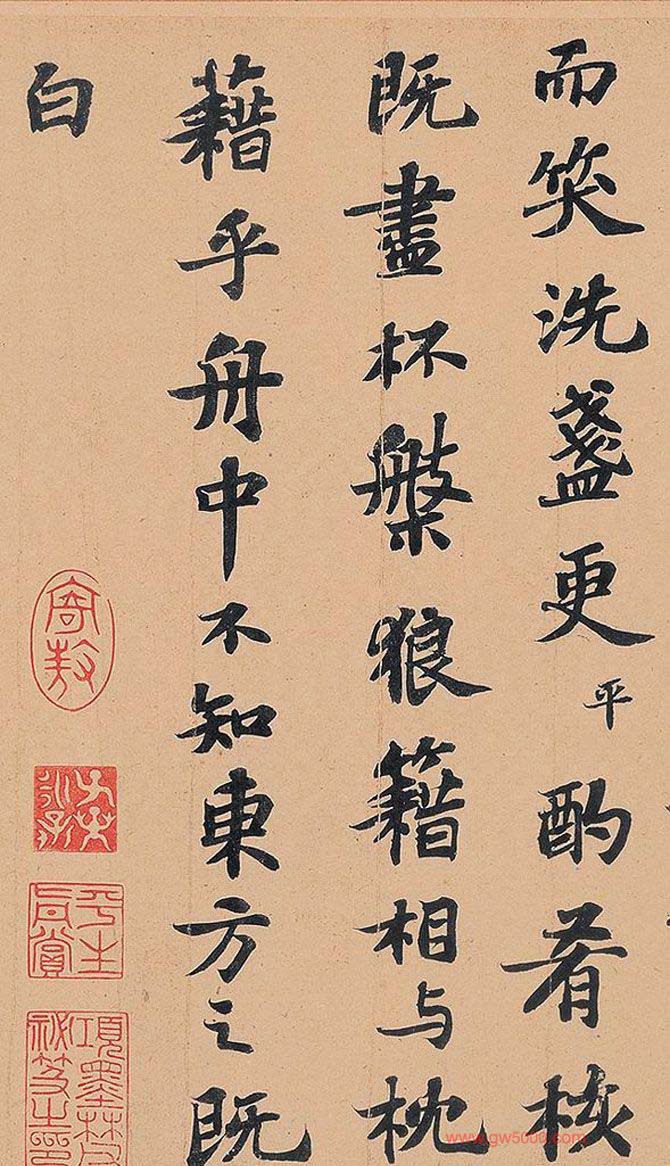 而笑洗盞更平酌肴核
既盡杯槃狼籍相与枕
藉乎舟中不知東方之既
白
寄敖
平生真賞
項墨林父祕笈之印
www.gw5000.com